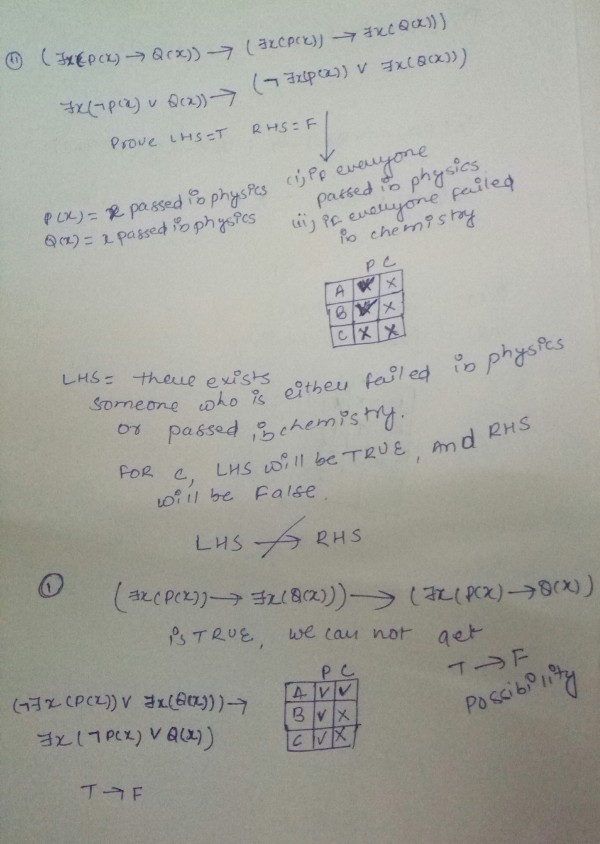 (ii) (∃x(P(x) → Q(x)) → (∃x(P(x)) → ∃x(Q(x)))
∃x(¬P(x) ∨ Q(x)) → (¬∃x(P(x)) ∨ ∃x(Q(x)))
Prove LHS=T RHS=F
P(x) = x passed in physics
Q(x) = x passed in physics
(i) if everyone
passed in physics
(ii) if everyone failed
in chemistry
P C
A ✓ X
B ✓ X
C X X
LHS = there exists
someone who is either failed in physics
or passed in chemistry.
FOR C, LHS will be TRUE, and RHS
will be False.
LHS ↛ RHS
(i) (∃x(P(x)) → ∃x(Q(x))) → (∃x(P(x) → Q(x))
is TRUE, we can not get
T → F
possibility
(¬∃x(P(x)) ∨ ∃x(Q(x))) →
∃x(¬P(x) ∨ Q(x))
P C
A ✓ ✓
B ✓ X
C ✓ X
T → F